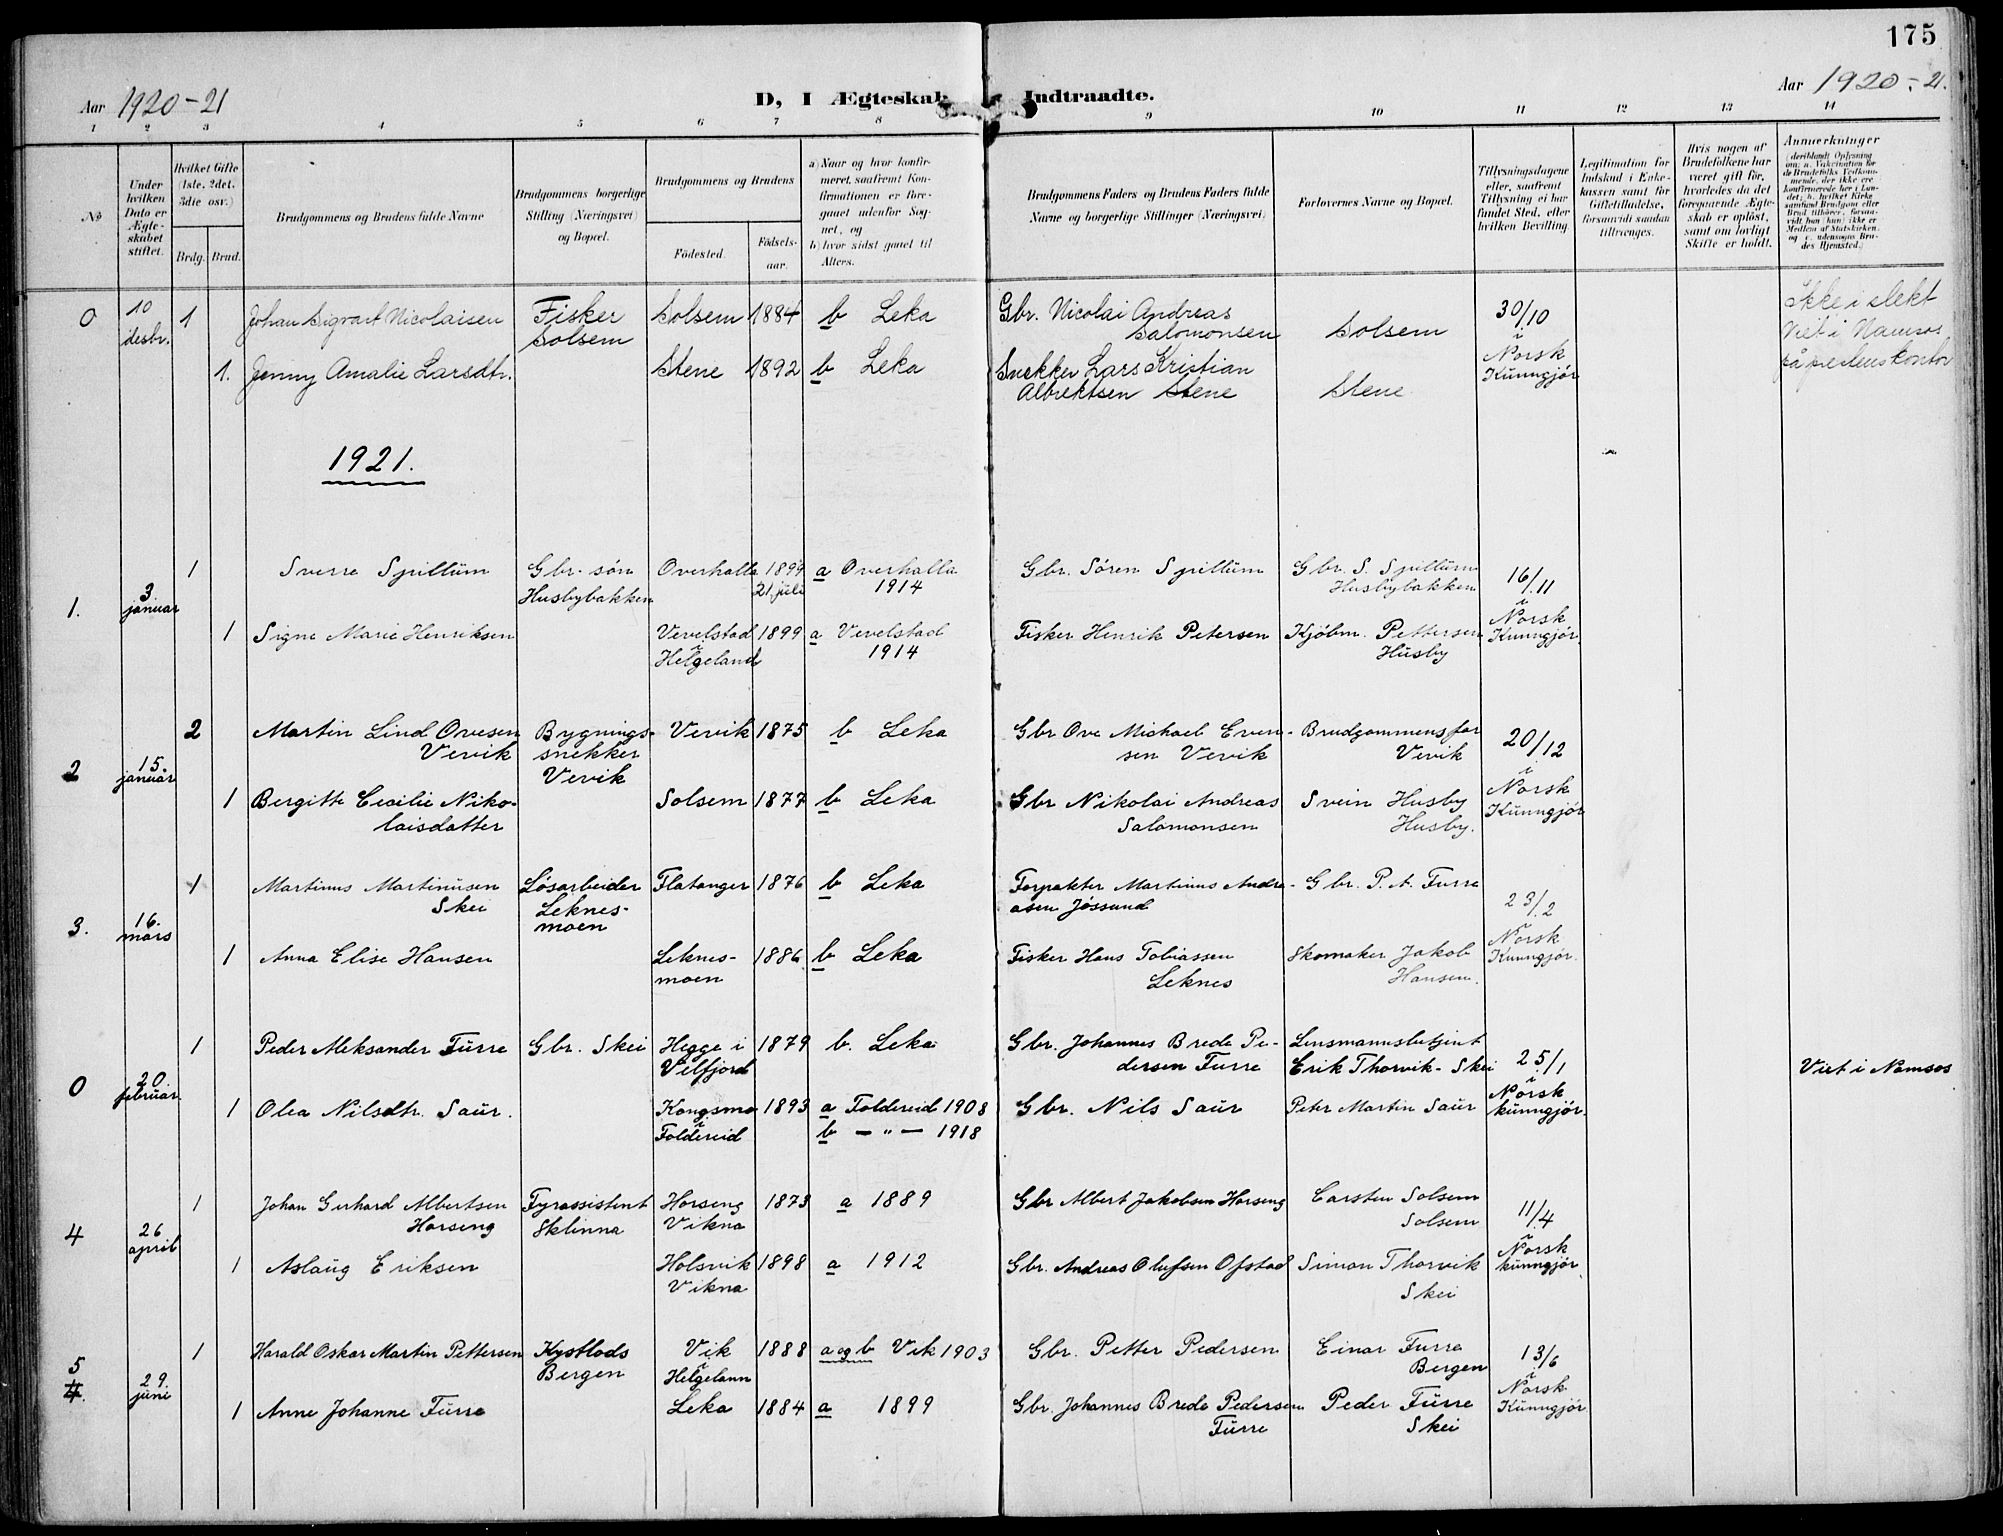 175
Aar 1920-21
D, I Ægteskab Indtraadte.
Aar 1920-21.
1 2 3 4 5 6 7 8 9 10 11 12 13 14
No
Under hvilken Dato er Ægteskabet stiftet.
Hvilket Gifte (1ste, 2det, 3die osv.)
Brdg. Brud.
Brudgommens og Brudens fulde Navne
Brudgommens borgerlige Stilling (Næringsvei) og Bopæl.
Brudgommens og Brudens
Födested.
Födselsaar.
a) Naar og hvor konfirmeret, saafremt Konfirmationen er foregaaet udenfor Sognet, og
b) hvor sidst gaaet til Alters.
Brudgommens Faders og Brudens Faders fulde Navne og borgerlige Stillinger (Næringsvei)
Forlovernes Navne og Bopæl.
Tillysningsdagene eller, saafremt Tillysning ei har fundet Sted, efter hvilken Bevilling.
Legitimation for Indskud i Enkekassen samt for Giftetilladelse, forsaavidt saadan tiltrænges.
Hvis nogen af Brudefolkene har været gift før, hvorledes da det foregaaende Ægteskab er opløst, samt om lovligt Skifte er holdt.
Anmerkninger
(deriblandt Oplysning om: a. Vakcination for de Brudefolks Vedkommende, der ikke ere konfirmerede her i Landet; b. hvilket Kirkesamfund Brudgom eller Brud tilhører, forsaavidt han (hun) ikke er Medlem af Statskirken, og c. udensogns Brudes Hjemsted.)
0 10 desbr. 1 Johan Sigvart Nicolaisen Fisker Solsem Solsem 1884 b Leka Gbr. Nicolai Andreas Salomonsen Solsem 30/10 i Norsk Kunngjør Ikke i slekt Viet i Namsos på prestens kontor
1. Jenny Amalie Larsdtr. Stene 1892 b Leka Snekker Lars Kristian Albrektsen Stene Stene
1921.
1. 3 januar 1 Sverre Spillum Gbr. søn Husbybakken Overhalla 1899 21. juli a Overhalla 1914 Gbr. Søren Spillum Gbr. S. Spillum Husbybakken 16/11 i Norsk Kunngjør.
1 Signe Marie Henriksen Vevelstad i Helgeland 1899 a Vevelstad 1914 Fisker Henrik Petersen Kjøbm. Pettersen Husby
2 15. januar 2 Martin Lind Ovesen Vervik Bygningssnekker Vervik Vervik 1875 b Leka Gbr Ove Michael Evensen Vervik Brudgommens far Vervik 20/12 i Norsk Kunngjør
1 Bergitte Cecilie Nikolaisdatter Solsem 1877 b Leka Gbr Nikolai Andreas Salomonsen Svein Husby Husby.
3. 16. mars 1 Martinus Martinusen Skei Løsarbeider Leknesmoen Flatanger 1876 b Leka Forpakter Martinus Andreasen Jøssund Gbr. P. A. Furre 23/2 i Norsk Kunngjør.
1 Anna Elise Hansen Leknesmoen 1886 b Leka Fisker Hans Tobiassen Leknes Skomaker Jakob Hansen.
0 20. februar. 1 Peder Aleksander Furre Gbr. Skei Hegge i Velfjord 1879 b. Leka Gbr. Johannes Brede Pedersen Furre Lensmannsbetjent Erik Thorvik - Skei 25/1 i Norsk kunngjør. Viet i Namsos
1 Olea Nilsdtr. Saur. Kongsmo i Foldereid 1893 a Foldereid 1908 b — " — 1918 Gbr. Nils Saur Peter Martin Saur
4 26 april 1 Johan Gerhard Albertsen Horseng Fyrassistent Sklinna Horseng Vikna 1873 a 1889 Gbr Albert Jakobsen Horseng Carsten Solsem Solsem 11/4 i Norsk kunngjør.
1 Aslaug Eriksen Holsvik Vikna 1898 a 1912 Gbr. Andreas Olufsen Ofstad Simon Thorvik Skei
5 4. 29. juni 1 Harald Oskar Martin Pettersen Kystlods Bergen Vik i Helgelann 1888 a og b Vik 1903 Gbr. Petter Pedersen Einar Furre Bergen 13/6 i Norsk Kunngjør
1 Anne Johanne Furre Leka 1884 a 1899 Gbr. Johannes Brede Pedersen Furre Peder Furre Skei